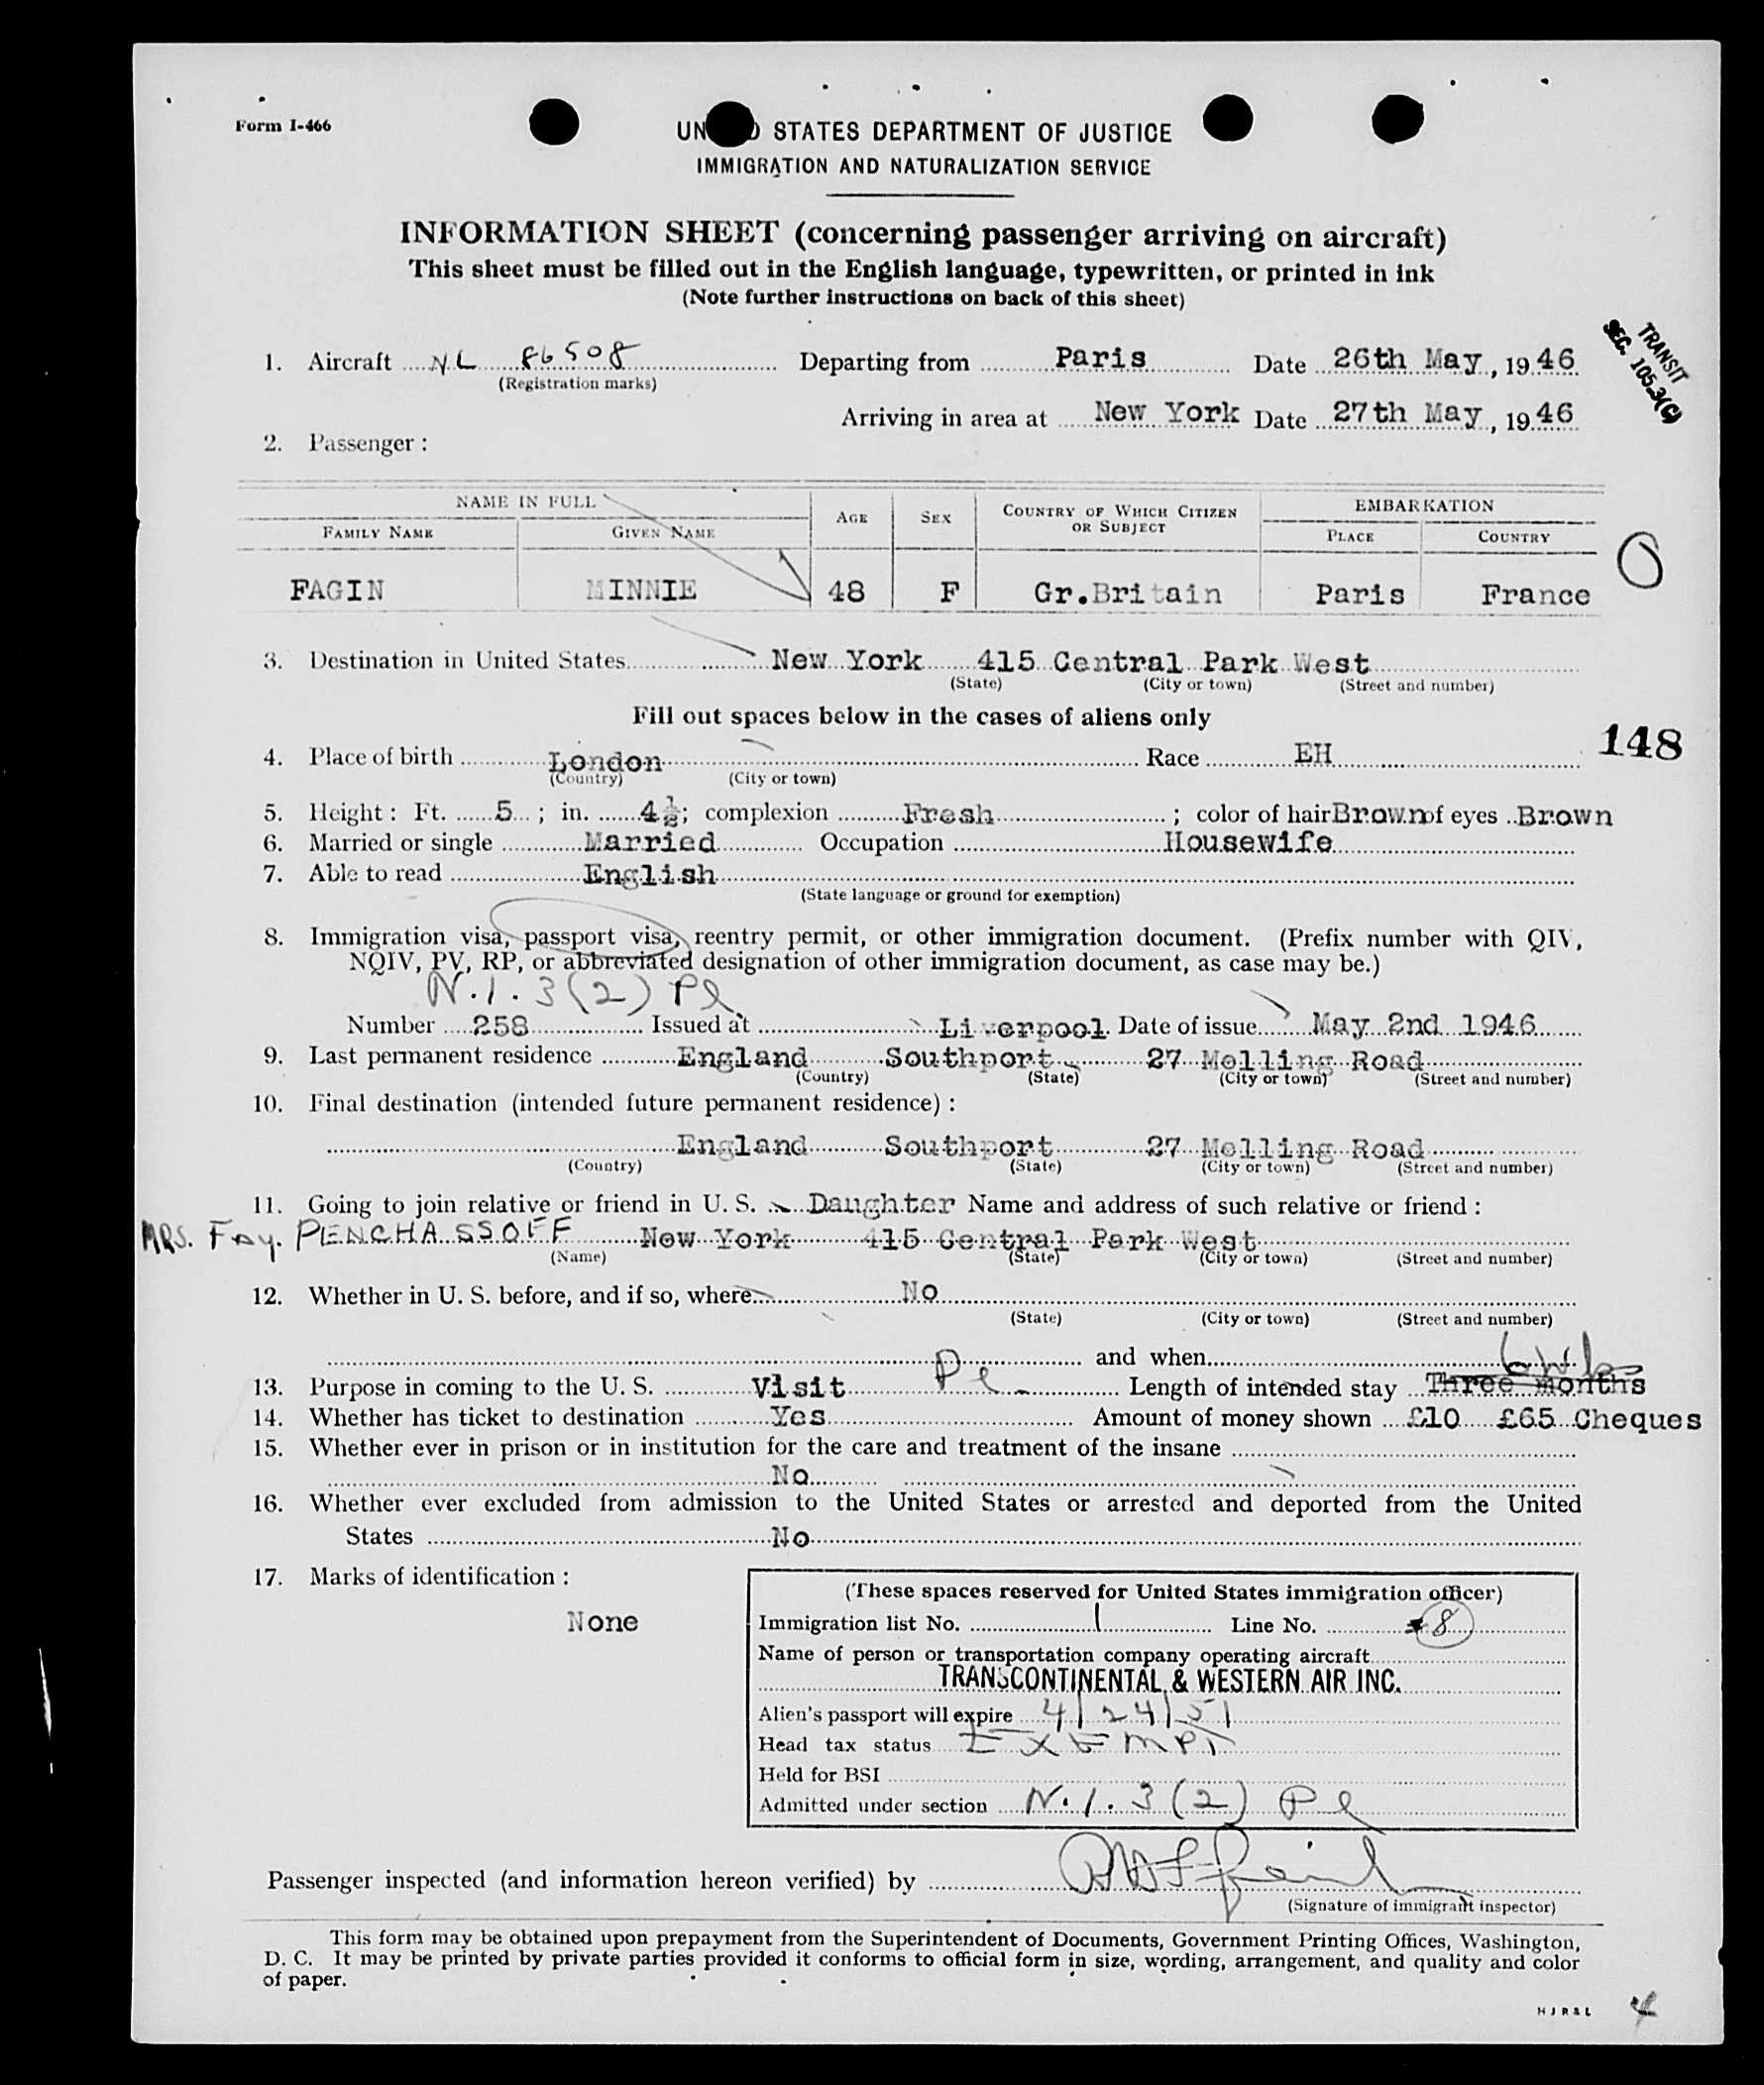 Form I-466
UN D STATES DEPARTMENT OF JUSTICE
IMMIGRATION AND NATURALIZATION SERVICE
INFORMATION SHEET (concerning passenger arriving on aircraft)
This sheet must be filled out in the English language, typewritten, or printed in ink
(Note further instructions on back of this sheet)
TRANSIT
SEC. 105.3(C)
1. Aircraft NL 86508 Departing from Paris Date 26th May, 1946
(Registration marks)
Arriving in area at New York Date 27th May, 1946
2. Passenger:
NAME IN FULL AGE SEX COUNTRY OF WHICH CITIZEN OR SUBJECT EMBARKATION
FAMILY NAME GIVEN NAME PLACE COUNTRY
FAGIN MINNIE 48 F Gr.Britain Paris France
3. Destination in United States New York 415 Central Park West
(State) (City or town) (Street and number)
Fill out spaces below in the cases of aliens only
148
4. Place of birth London Race EH
(Country) (City or town)
5. Height: Ft. 5; in. 4½; complexion Fresh; color of hair Brown of eyes Brown
6. Married or single Married Occupation Housewife
7. Able to read English
(State language or ground for exemption)
8. Immigration visa, passport visa, reentry permit, or other immigration document. (Prefix number with QIV,
NQIV, PV, RP, or abbreviated designation of other immigration document, as case may be.)
N.I. 3(2) Pl
Number 258 Issued at Liverpool Date of issue May 2nd 1946
9. Last permanent residence England Southport 27 Molling Road
(Country) (State) (City or town) (Street and number)
10. Final destination (intended future permanent residence):
England Southport 27 Molling Road
(Country) (State) (City or town) (Street and number)
11. Going to join relative or friend in U. S. Daughter Name and address of such relative or friend:
MRS. Fay. PENCHASSOFF New York 415 Central Park West
(Name) (State) (City or town) (Street and number)
12. Whether in U. S. before, and if so, where No
(State) (City or town) (Street and number)
and when
6 wks
13. Purpose in coming to the U. S. Visit Pl Length of intended stay Three months
14. Whether has ticket to destination Yes Amount of money shown £10 £65 Cheques
15. Whether ever in prison or in institution for the care and treatment of the insane
No
16. Whether ever excluded from admission to the United States or arrested and deported from the United
States No
17. Marks of identification:
None
(These spaces reserved for United States immigration officer)
Immigration list No. 1 Line No. 8
Name of person or transportation company operating aircraft
TRANSCONTINENTAL & WESTERN AIR INC.
Alien's passport will expire 4/24/51
Head tax status EXEMPT
Held for BSI
Admitted under section N.I. 3(2) Pl
Passenger inspected (and information hereon verified) by
(Signature of immigrant inspector)
This form may be obtained upon prepayment from the Superintendent of Documents, Government Printing Offices, Washington,
D. C. It may be printed by private parties provided it conforms to official form in size, wording, arrangement, and quality and color
of paper.
HJR&L